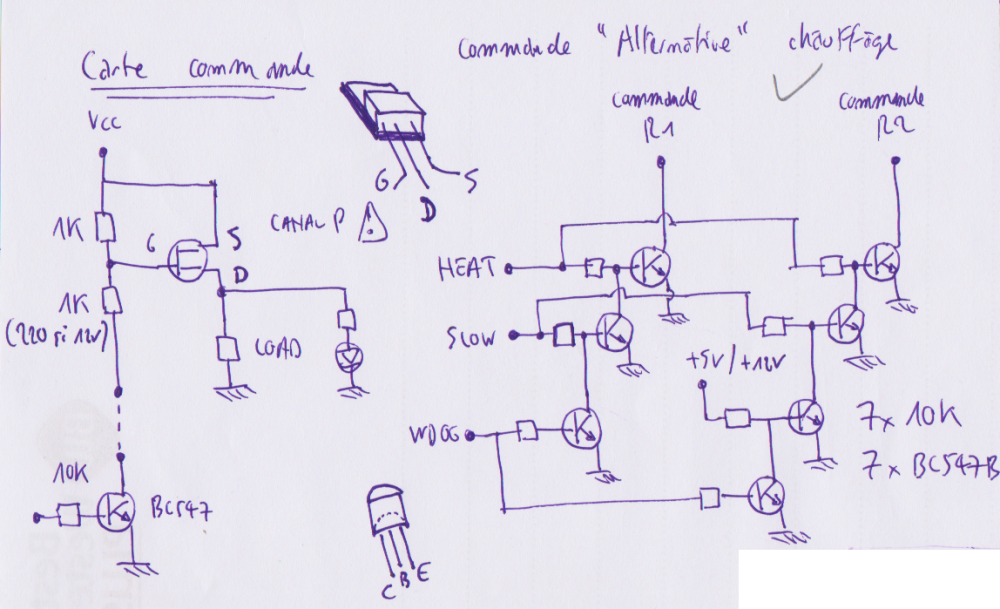 Carte commande
Vcc
1K
G
S
D
1K
(220 si 12V)
LOAD
10K
BC547
G
D
S
CANAL P
!
C B E
Commande "Alternative" chauffage
Commande
R1
Commande
R2
HEAT
SLOW
WDOG
+5V/+12V
7x 10K
7x BC547B